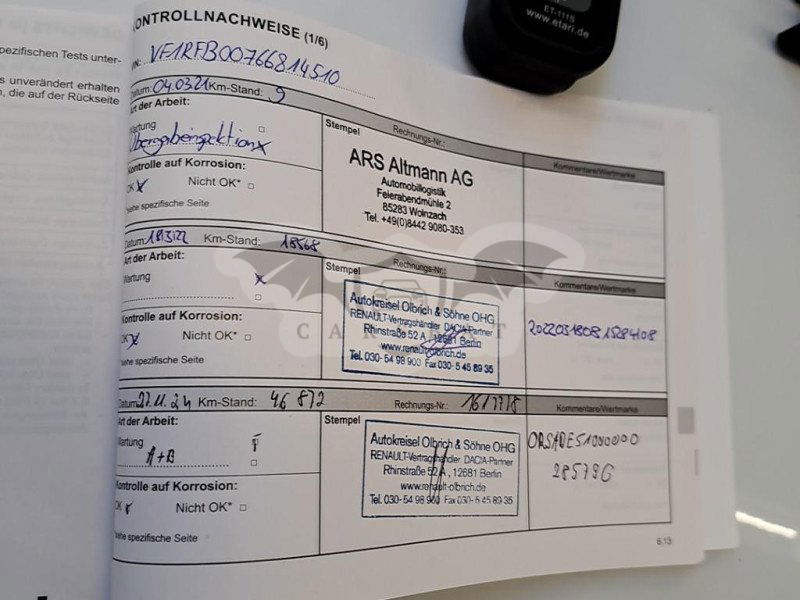 ET-111S
www.etari.de
pezifischen Tests unter-
s unverändert erhalten
n, die auf der Rückseite
KONTROLLNACHWEISE (1/6)
VF1RFB00766814510
Datum: 04.03.21 Km-Stand: 9
Art der Arbeit:
Stempel
Rechnungs-Nr.:
Kommentare/Wertmarke
Wartung
Übergabeinspektion x
Kontrolle auf Korrosion:
OK x Nicht OK*
*siehe spezifische Seite
ARS Altmann AG
Automobillogistik
Feierabendmühle 2
85283 Wolnzach
Tel. +49(0)8442 9080-353
Datum: 18/3/22 Km-Stand: 18568
Art der Arbeit:
Stempel
Rechnungs-Nr.:
Kommentare/Wertmarke
Wartung x
Kontrolle auf Korrosion:
OK x Nicht OK*
*siehe spezifische Seite
Autokreisel Olbrich & Söhne OHG
RENAULT-Vertragshändler DACIA-Partner
Rhinstraße 52 A, 12681 Berlin
www.renault-olbrich.de
Tel. 030-54 98 900 Fax 030-5 45 89 35
Datum: 27.11.24 Km-Stand: 46 872
Rechnungs-Nr.:
Kommentare/Wertmarke
Art der Arbeit:
Stempel
Wartung
A+B
Kontrolle auf Korrosion:
OK Nicht OK*
*siehe spezifische Seite
Autokreisel Olbrich & Söhne OHG
RENAULT-Vertragshändler DACIA-Partner
Rhinstraße 52 A, 12681 Berlin
www.renault-olbrich.de
Tel. 030-54 98 900 Fax 030-5 45 89 35
28579G
6.13